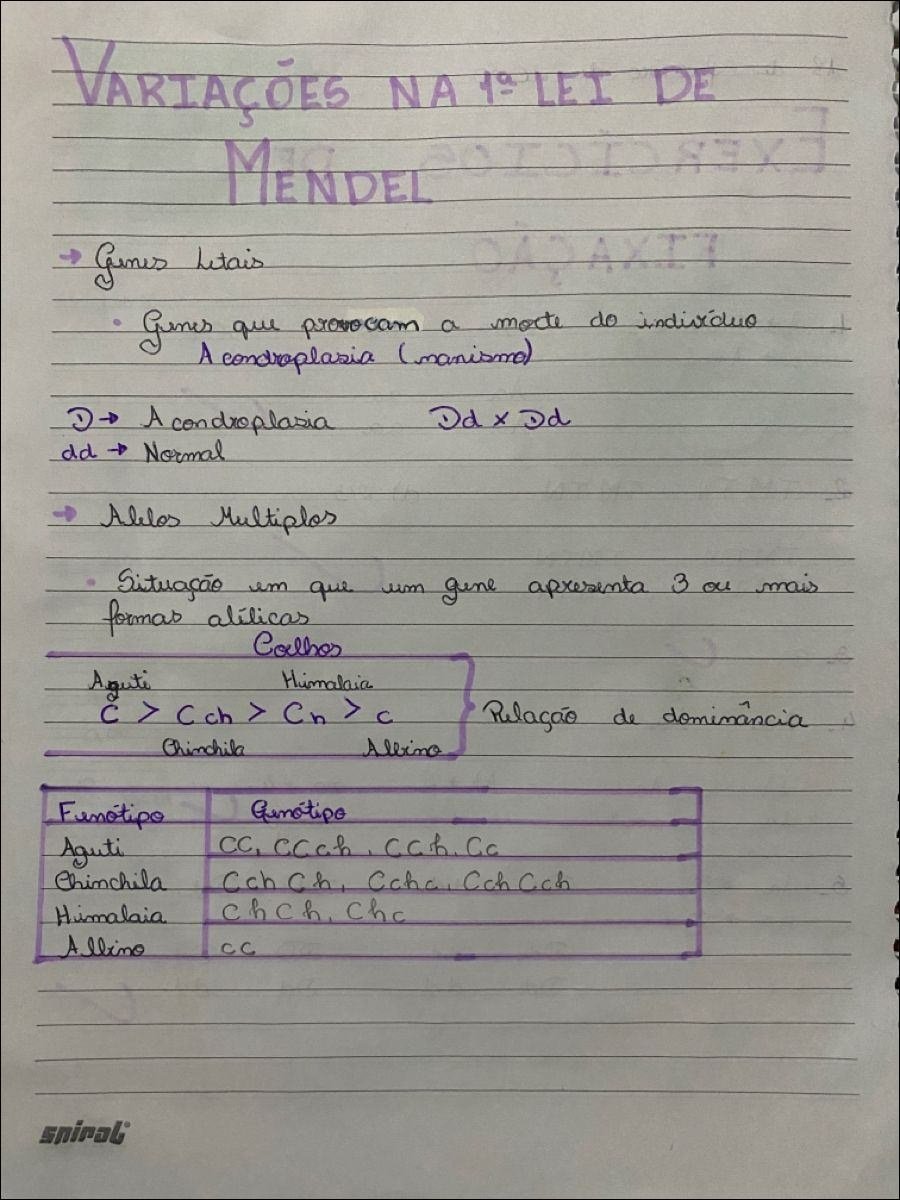 VARIAÇÕES NA 1ª LEI DE
MENDEL
→ Genes letais
• Genes que provocam a morte do indivíduo
Acondroplasia (nanismo)
D → Acondroplasia Dd x Dd
dd → Normal
→ Alelos Multiplos
• Situação em que um gene apresenta 3 ou mais
formas alélicas
Coelhos
Aguti Himalaia
C > Cch > Ch > c } Relação de dominância
Chinchila Albino
Fenótipo Genótipo
Aguti CC, CCch, CCh, Cc
Chinchila CchCh, Cchc, CchCch
Himalaia ChCh, Chc
Albino cc
spiral